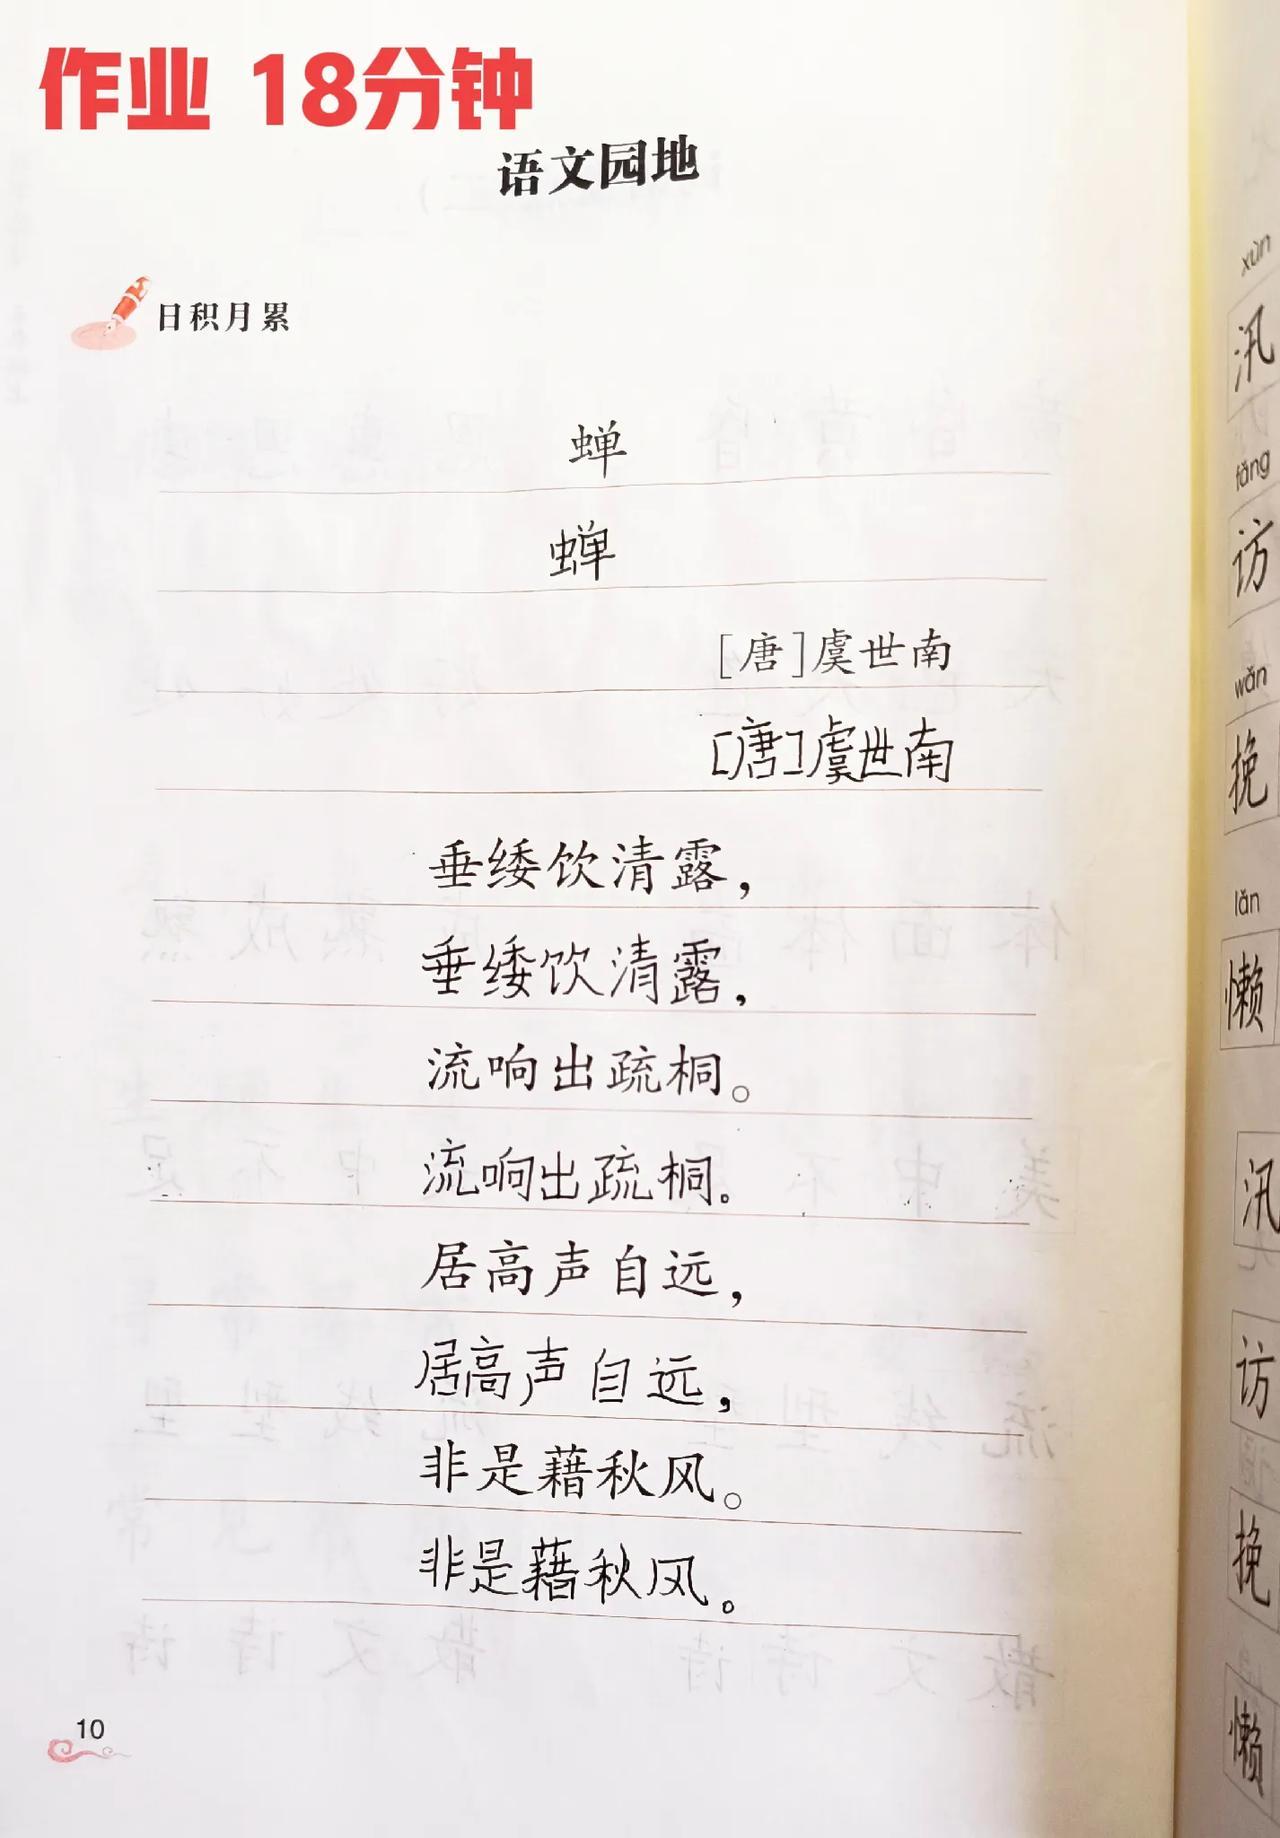 作业 18分钟
语文园地
日积月累
蝉
蝉
[唐]虞世南
[唐]虞世南
垂緌饮清露，
垂緌饮清露，
流响出疏桐。
流响出疏桐。
居高声自远，
居高声自远，
非是藉秋风。
非是藉秋风。
10
xùn
汛
fǎng
访
wǎn
挽
lǎn
懒
汛
访
挽
懒